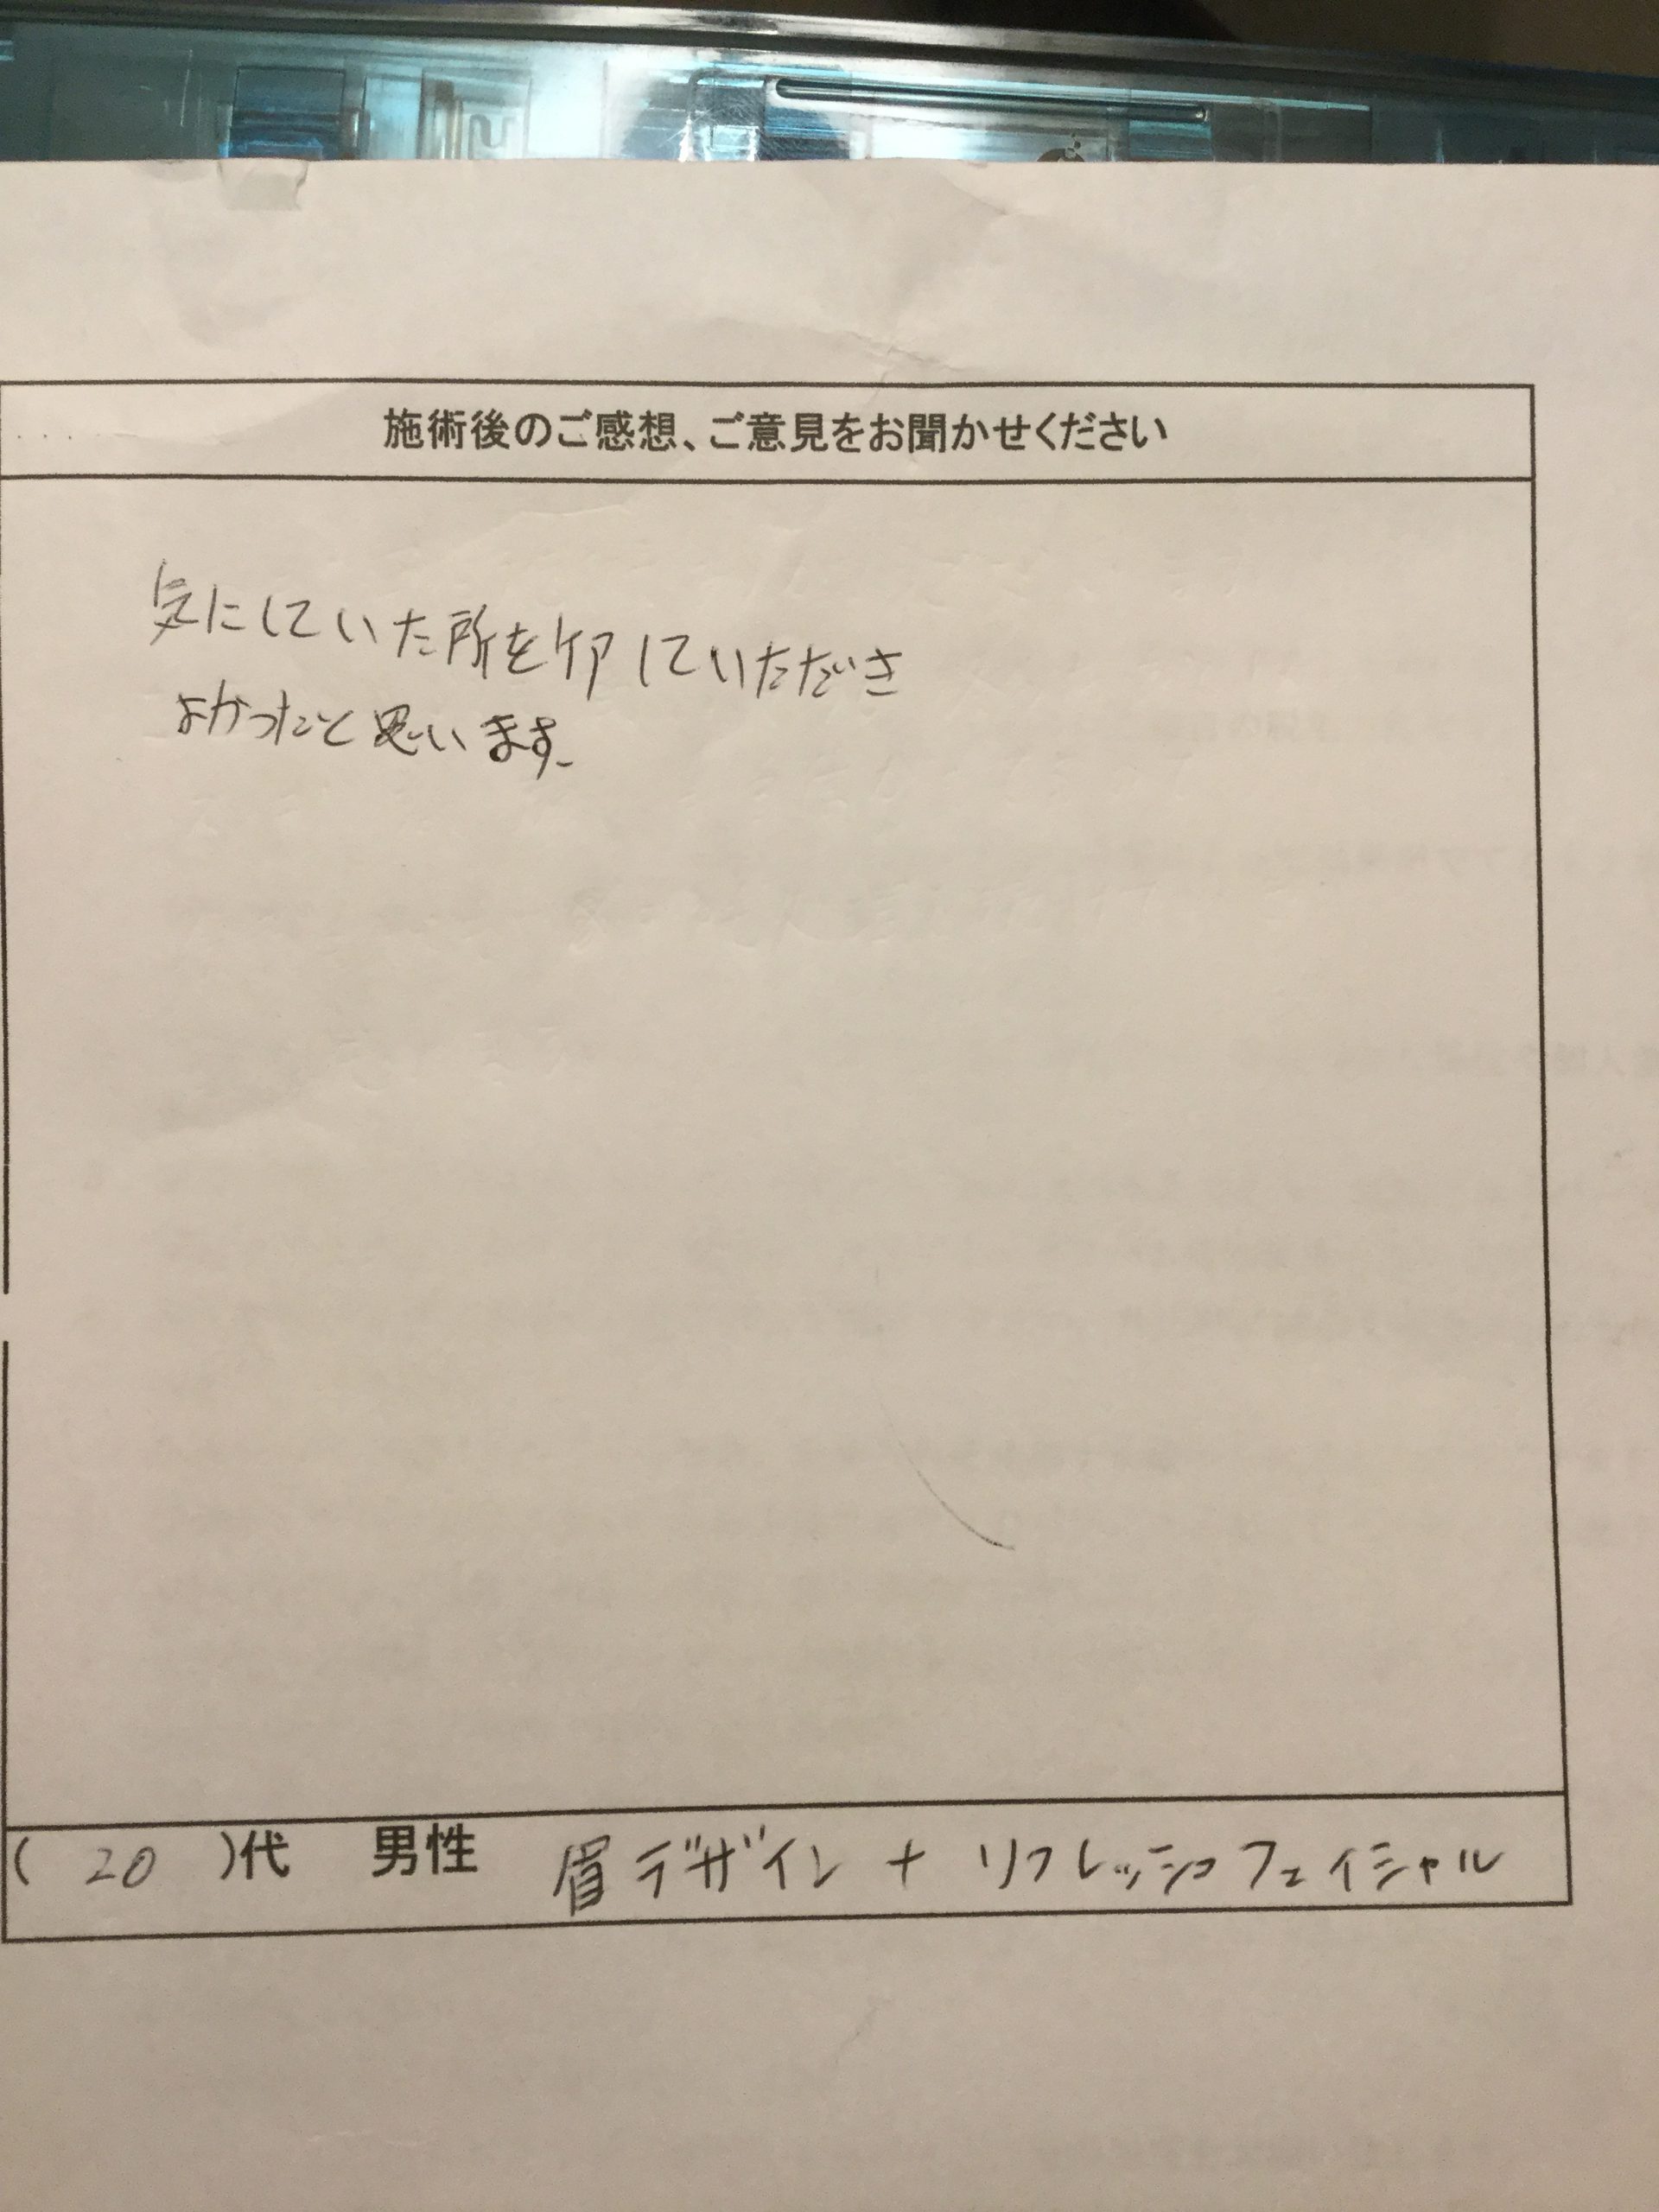 施術後のご感想、ご意見をお聞かせください
気にしていた所をケアしていただき
よかったと思います。
( 20 )代 男性 眉デザイン + リフレッシュフェイシャル